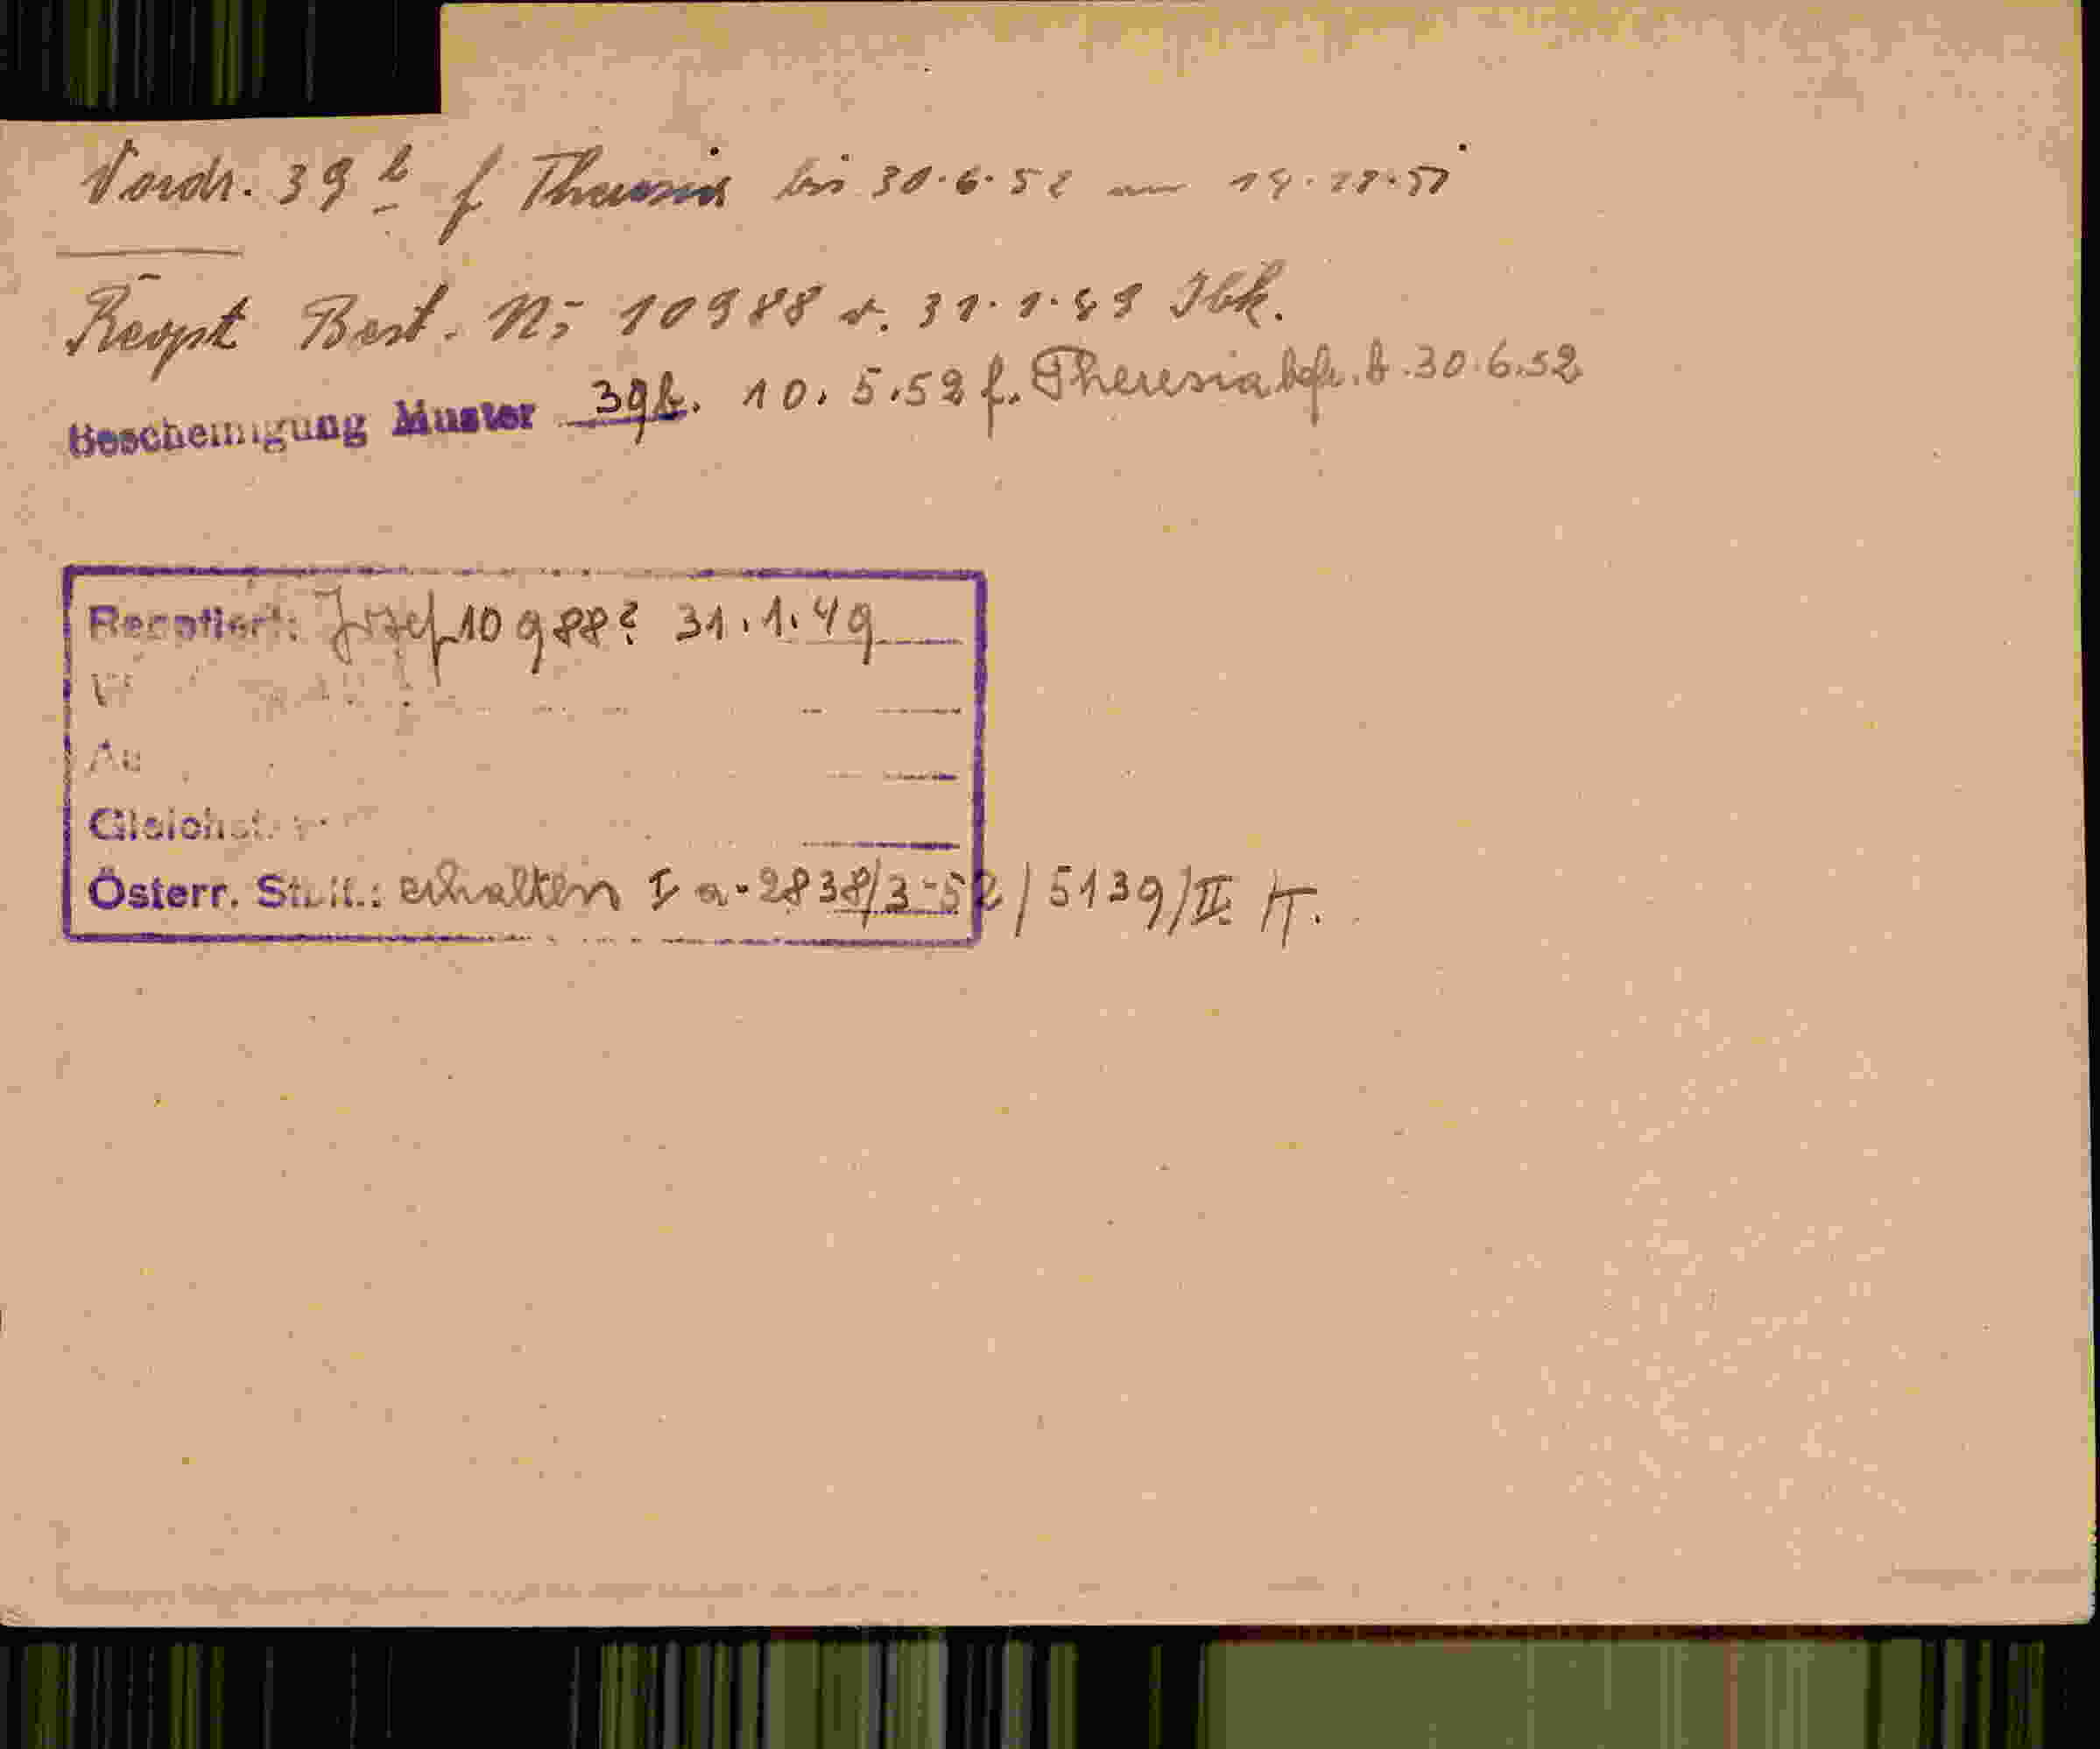 Vordr. 39 b f Theresia bis 30.6.52
Rēopt Best. No 10988 v. 31.1.49 Ibk.
Bescheinigung Muster 39b. 10.5.52 f. Theresia befr. b. 30.6.52
Reoptiert: Josef 10988? 31.1.49
Gleichst.
Österr. St.: erhalten I a-2838/3-52/5139/II. IT.